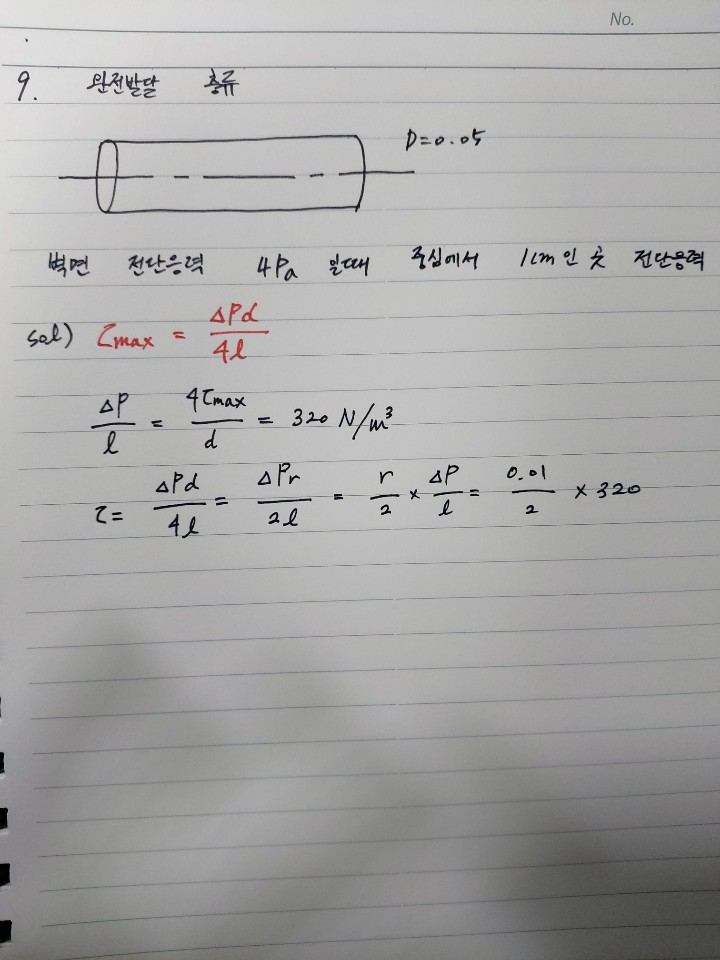 No.
9. 완전발달 층류
D=0.05
벽면 전단응력 4Pa 일때 중심에서 1cm인 곳 전단응력
sol) τmax = ΔPd/4l
ΔP/l = 4τmax/d = 320 N/m³
τ= ΔPd/4l = ΔPr/2l = r/2 × ΔP/l = 0.01/2 × 320